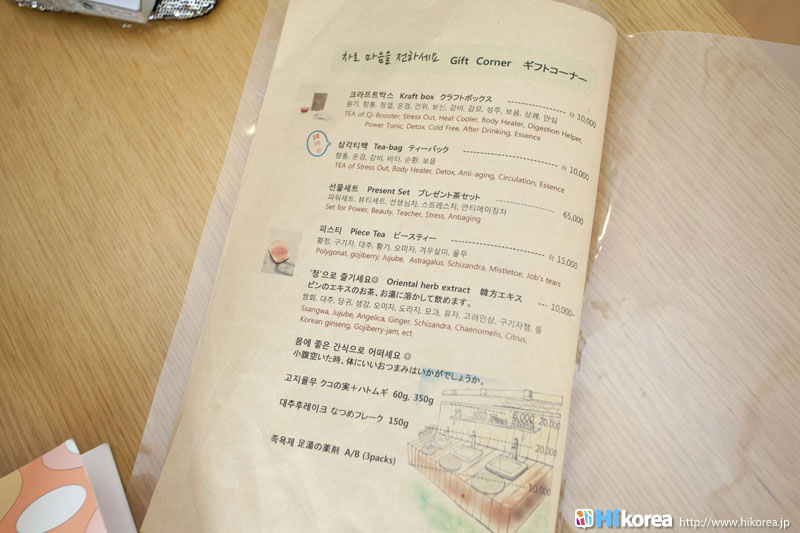 차로 마음을 전하세요 Gift Corner ギフトコーナー
크라프트박스 Kraft box クラフトボックス 각 10,000
원기, 항통, 청열, 온경, 건위, 보신, 감비, 감모, 성주, 보음, 상쾌, 안심
TEA of Qi-Booster, Stress Out, Heat Cooler, Body Heater, Digestion Helper,
Power Tonic, Detox, Cold Free, After Drinking, Essence
10
삼각티백 Tea-bag ティーバック 각 10,000
항통, 온경, 감비, 비타, 순환, 보음
TEA of Stress Out, Body Heater, Detox, Anti-aging, Circulation, Essence
선물세트 Present Set プレゼント茶セット 65,000
파워세트, 뷰티세트, 선생님차, 스트레스차, 안티에이징차
Set for Power, Beauty, Teacher, Stress, Antiaging
피스티 Piece Tea ピースティー 각 15,000
황정, 구기자, 대추, 황기, 오미자, 겨우살이, 율무
Polygonat, gojiberry, Jujube, Astragalus, Schizandra, Mistletoe, Job's tears
'청'으로 즐기세요☺ Oriental herb extract 韓方エキス 10,000~
ビンのエキスのお茶、お湯に溶かして飲めます。
쌍화, 대추, 당귀, 생강, 오미자, 도라지, 모과, 유자, 고려인삼, 구기자잼, 등
Ssangwa, Jujube, Angelica, Ginger, Schizandra, Chaenomelis, Citrus,
Korean ginseng, Gojiberry-jam, ect.
몸에 좋은 간식으로 어떠세요 ☺
小腹空いた時、体にいいおつまみはいかがでしょうか。
고지율무 クコの実+ハトムギ 60g, 350g 6,000, 20,000
대추후레이크 なつめフレーク 150g 20,000
족욕제 足湯の薬剤 A/B (3packs) 10,000
Hikorea http://www.hikorea.jp